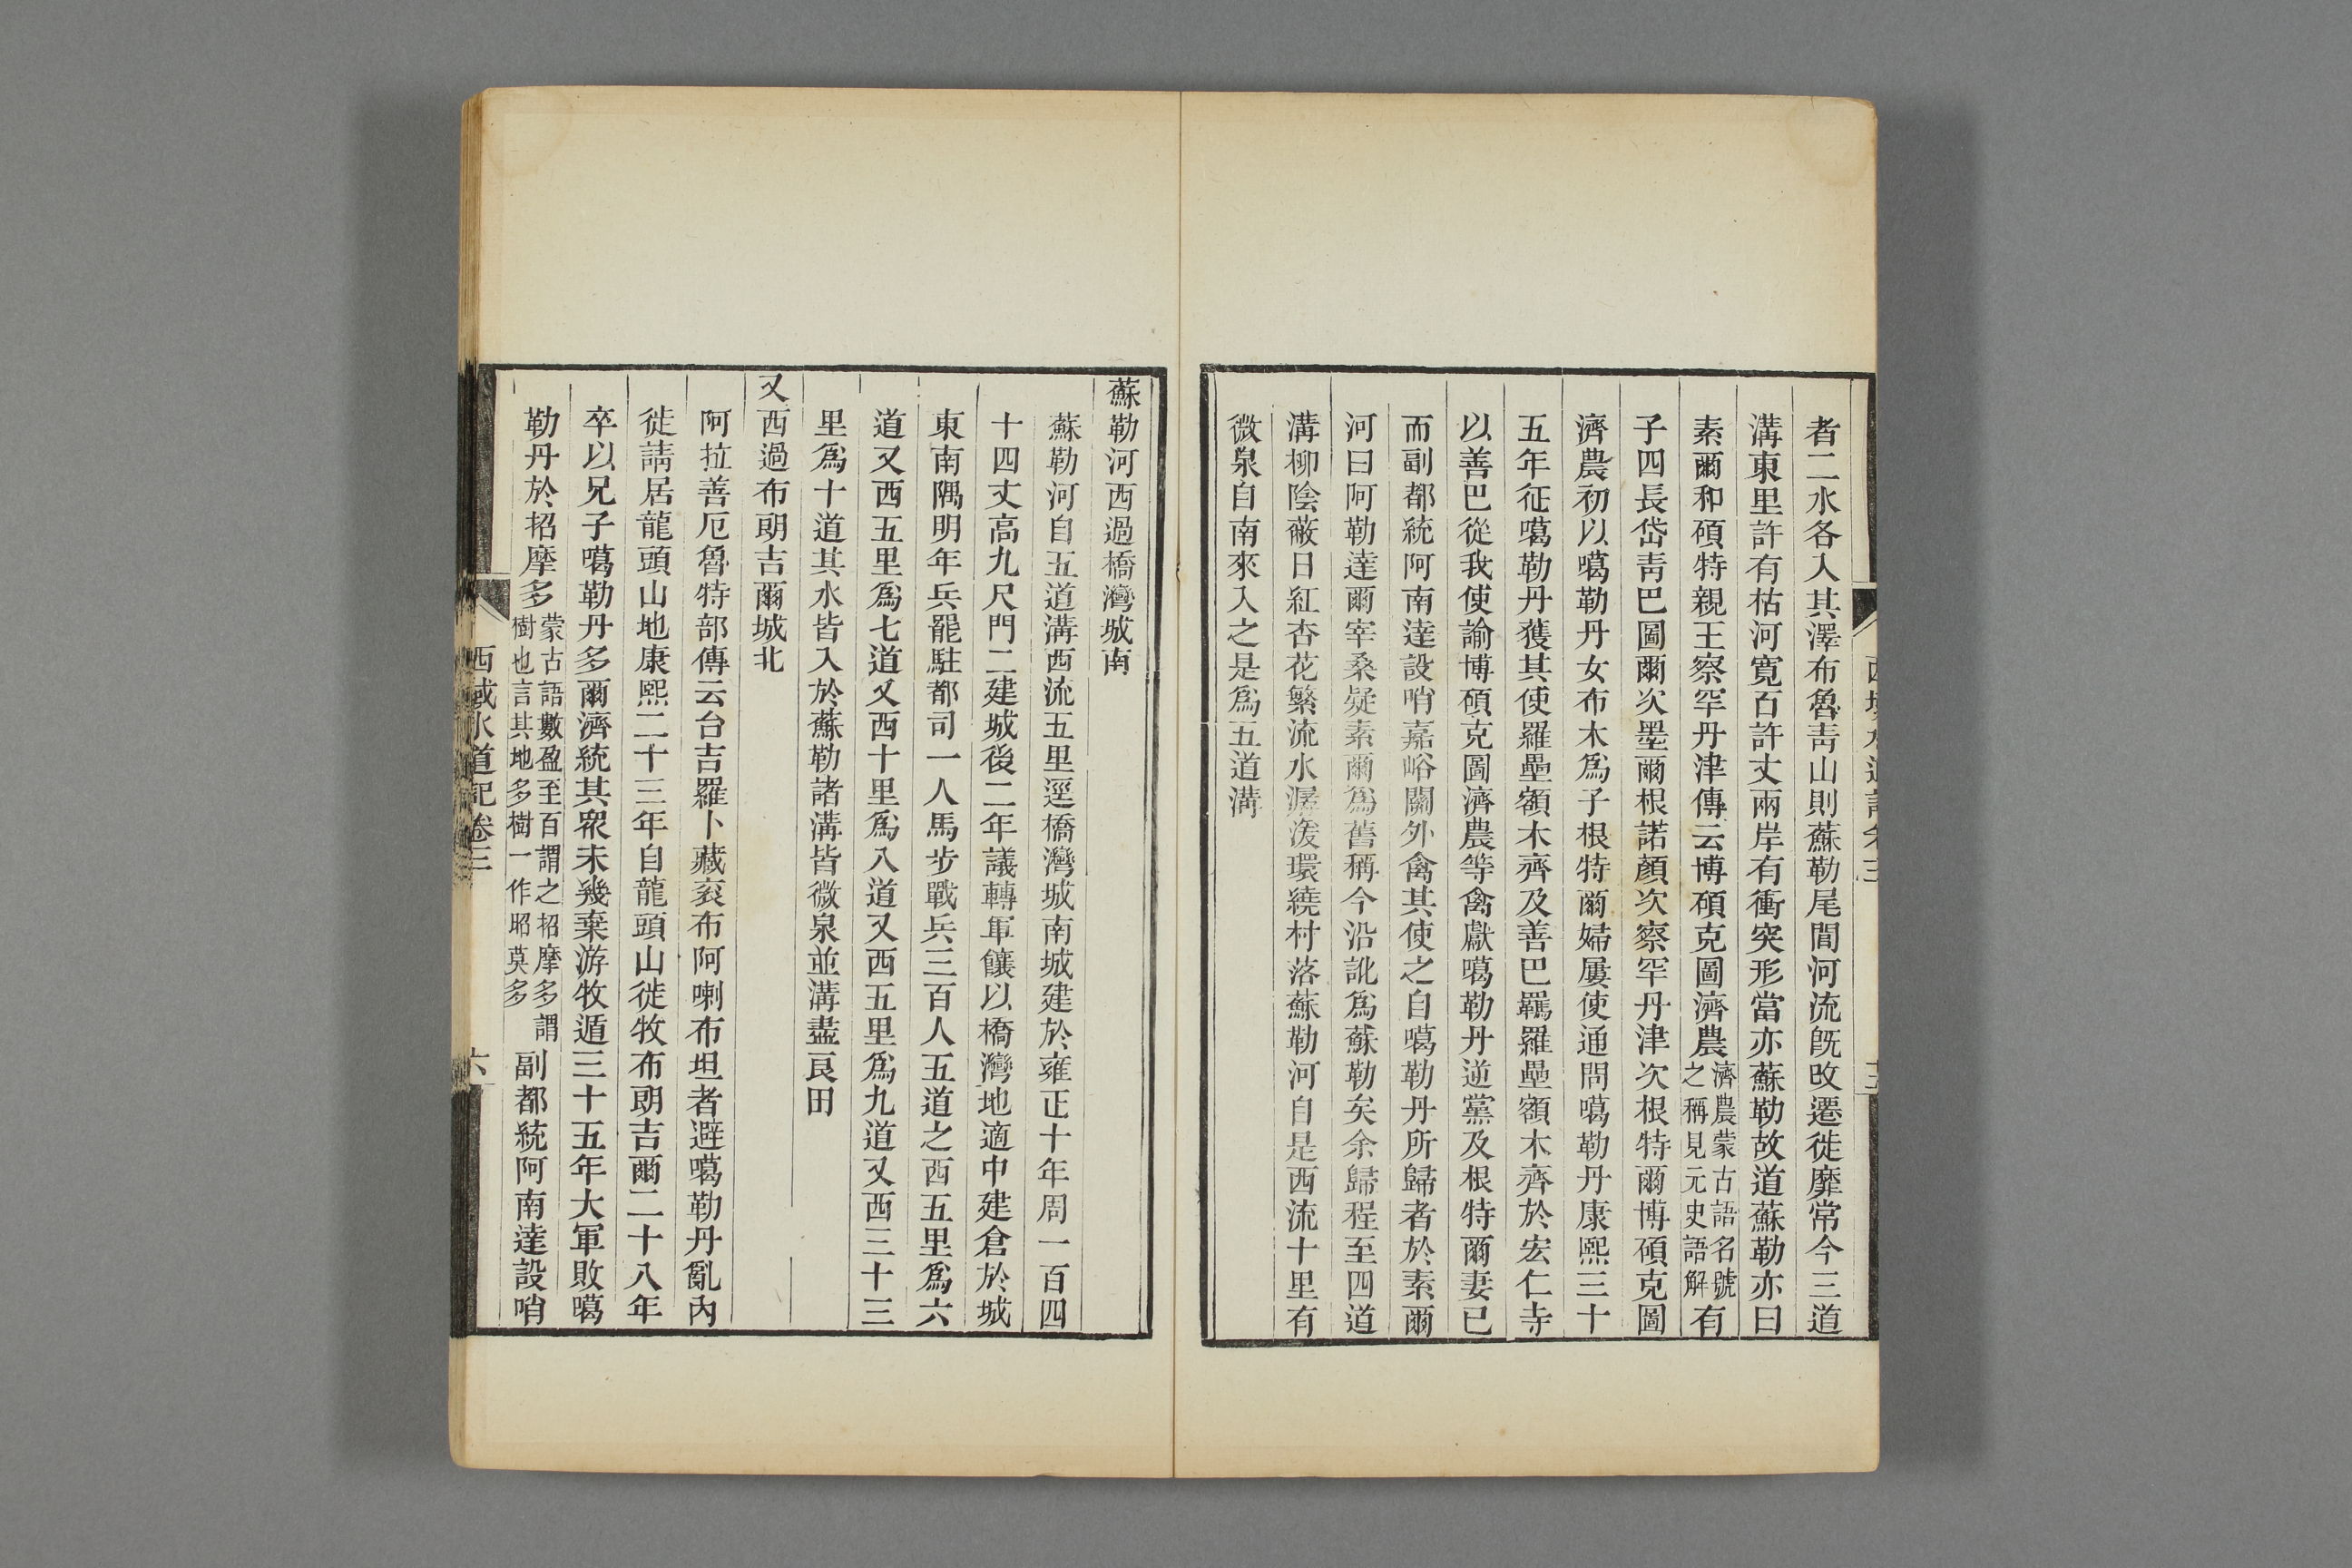 者二水各入其澤布魯靑山則蘇勒尾閭河流旣改遷徙靡常今三道
溝東里許有枯河寬百許丈兩岸有衝突形當亦蘇勒故道蘇勒亦曰
素爾和碩特親王察罕丹津傳云博碩克圖濟農濟農蒙古語名號之稱見元史語解有
子四長岱靑巴圖爾次墨爾根諾顏次察罕丹津次根特爾博碩克圖
濟農初以噶勒丹女布木爲子根特爾婦屢使通問噶勒丹康熙三十
五年征噶勒丹獲其使羅壘額木齊及善巴羈羅壘額木齊於宏仁寺
以善巴從我使諭博碩克圖濟農等禽獻噶勒丹逆黨及根特爾妻已
而副都統阿南達設哨嘉峪關外禽其使之自噶勒丹所歸者於素爾
河曰阿勒達爾宰桑疑素爾爲舊稱今沿訛爲蘇勒矣余歸程至四道
溝柳陰蔽日紅杏花繁流水潺湲環繞村落蘇勒河自是西流十里有
微泉自南來入之是爲五道溝
蘇勒河西過橋灣城南
蘇勒河自五道溝西流五里逕橋灣城南城建於雍正十年周一百四
十四丈高九尺門二建城後二年議轉軍饟以橋灣地適中建倉於城
東南隅明年兵罷駐都司一人馬步戰兵三百人五道之西五里爲六
道又西五里爲七道又西十里爲八道又西五里爲九道又西三十三
里爲十道其水皆入於蘇勒諸溝皆微泉並溝盡良田
又西過布朗吉爾城北
阿拉善厄魯特部傳云台吉羅卜藏袞布阿喇布坦者避噶勒丹亂內
徙請居龍頭山地康熙二十三年自龍頭山徙牧布朗吉爾二十八年
卒以兄子噶勒丹多爾濟統其眾未幾棄游牧遁三十五年大軍敗噶
勒丹於招摩多蒙古語數盈至百謂之招摩多謂樹也言其地多樹一作昭莫多副都統阿南達設哨
西域水道記卷三
六